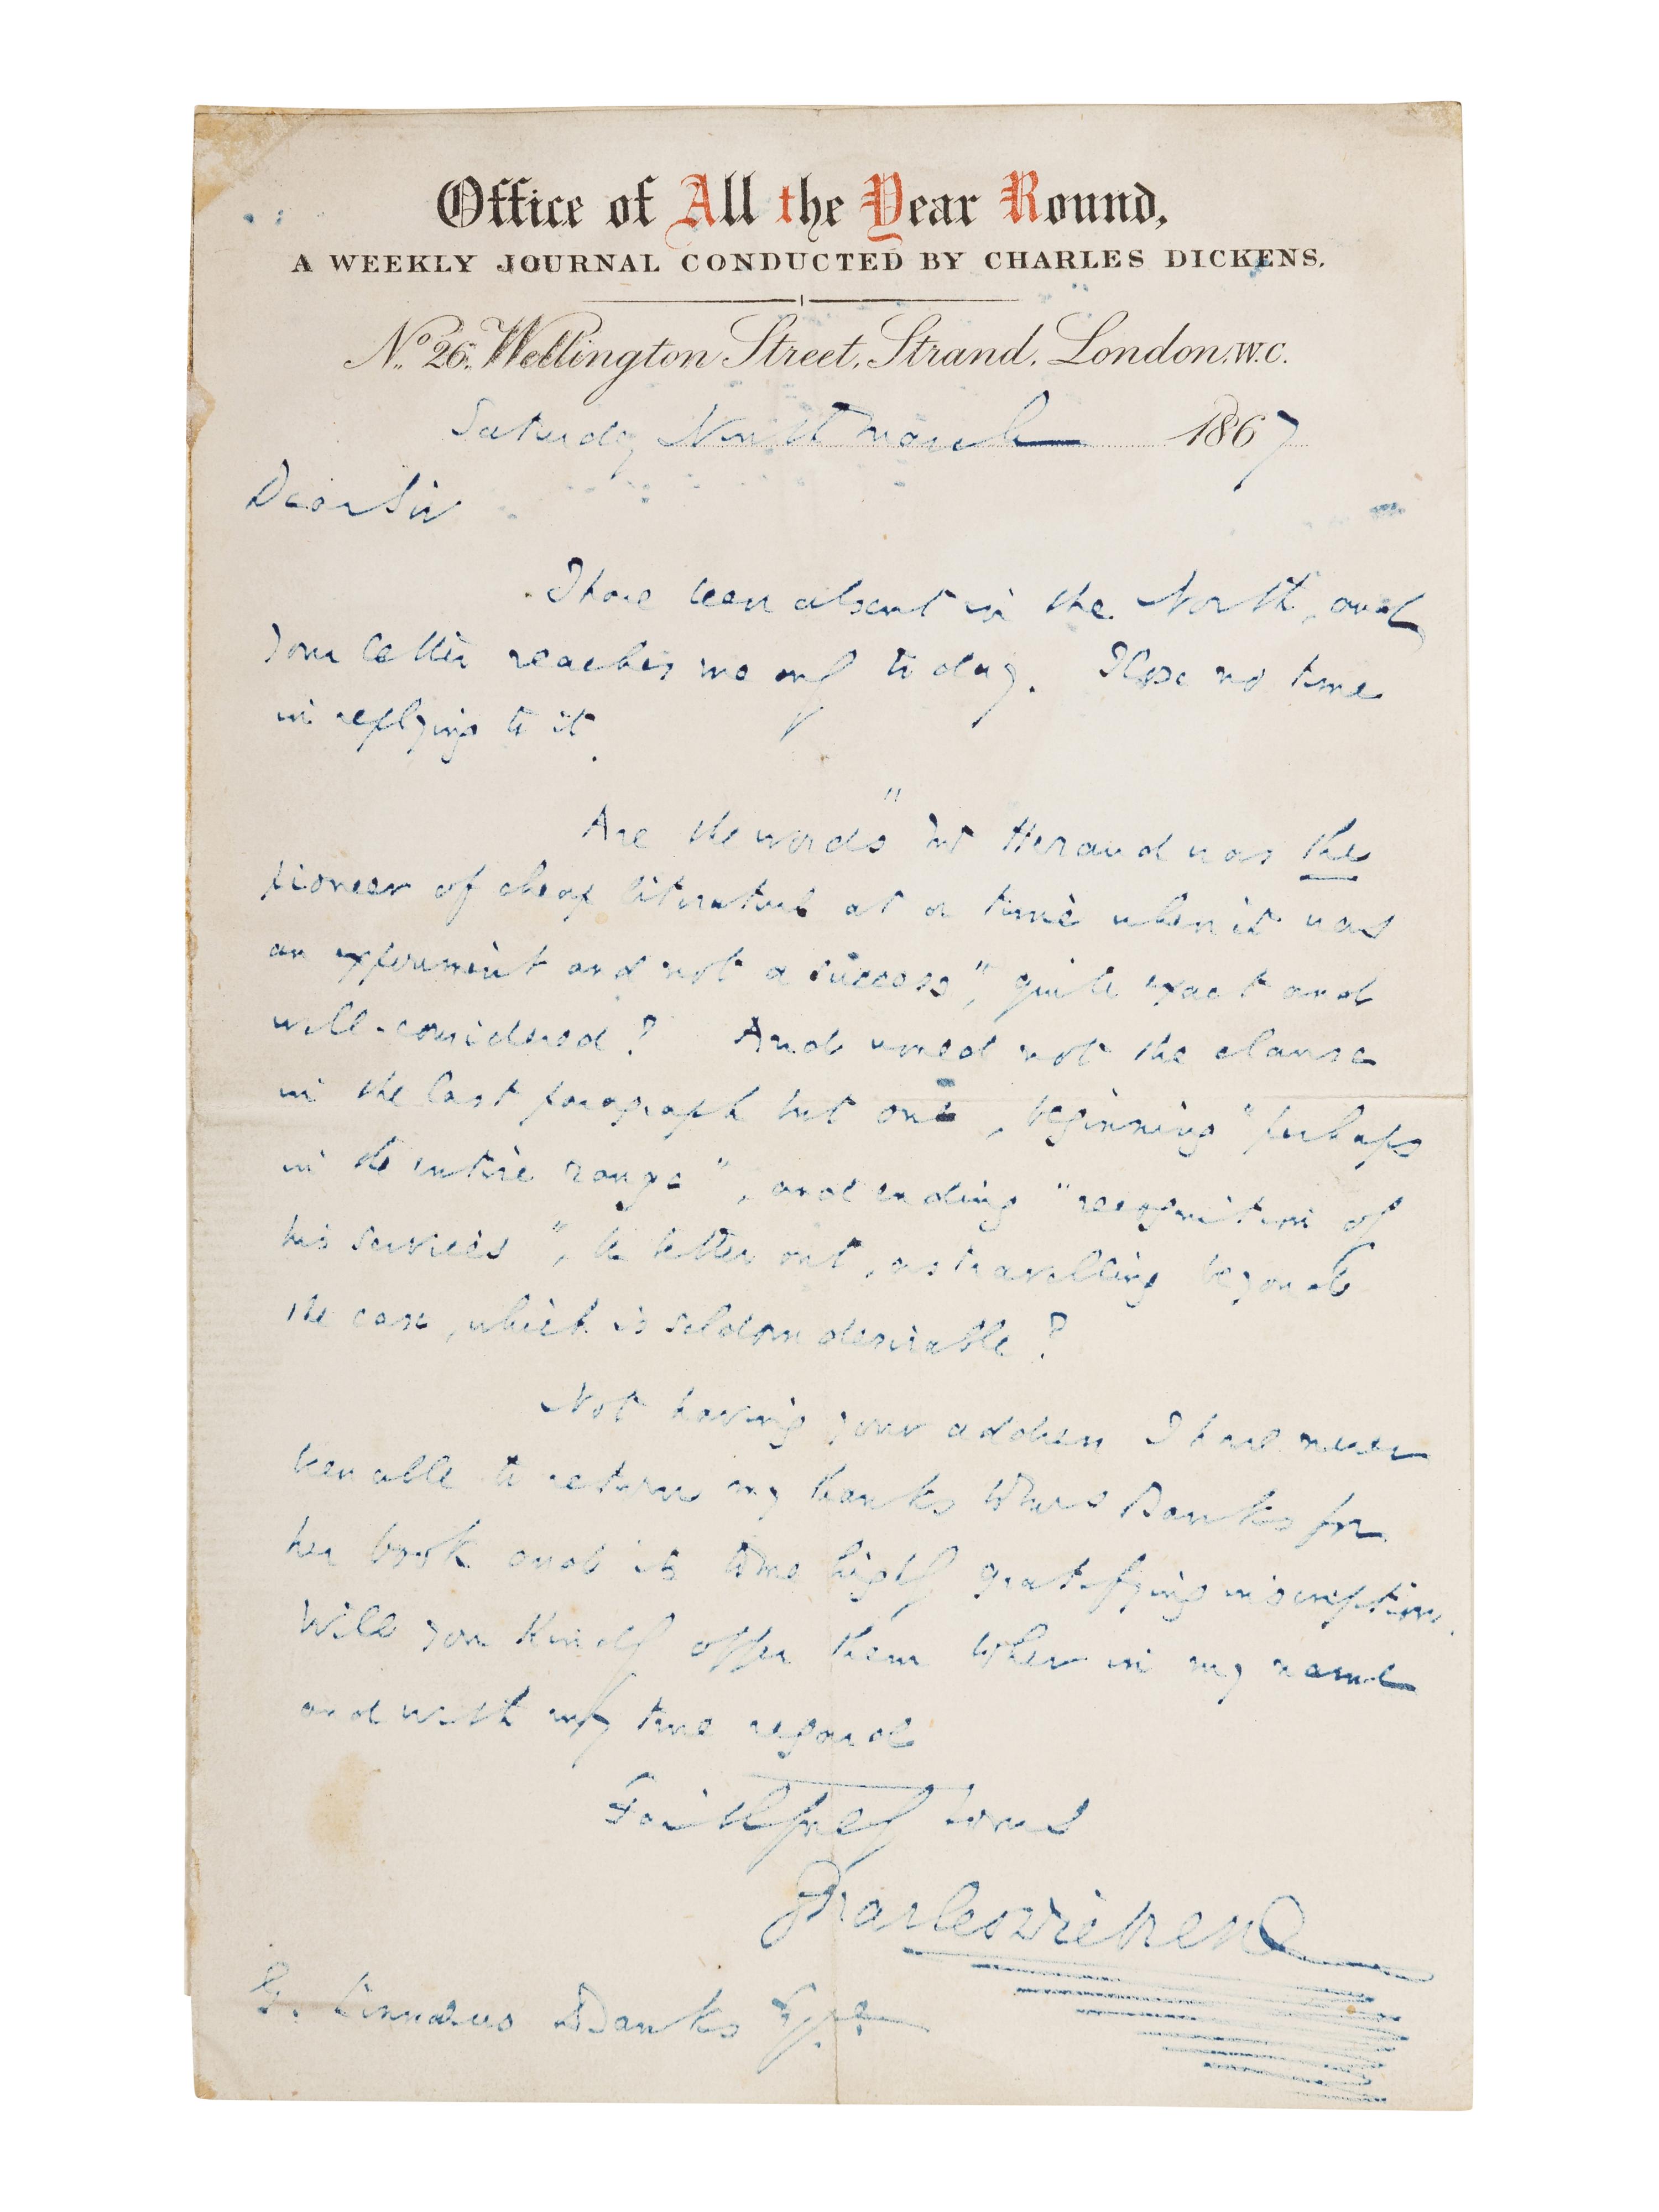 Office of All the Year Round,
A WEEKLY JOURNAL CONDUCTED BY CHARLES DICKENS.
No. 26, Wellington Street, Strand, London, W.C.
Saturday Ninth March 1867
Dear Sir
I have been absent in the North, and
your letter reaches me only to day. I lose no time
in replying to it.
Are the words "Mr Heraud was the
pioneer of cheap literature at a time when it was
an experiment and not a success", quite exact and
well-considered? And would not the clause
in the last paragraph but one, beginning "perhaps
in the entire range", and ending "recognition of
his services", be better out, as travelling beyond
the case, which is seldom desirable?
Not having your address I have never
been able to return my thanks to Mrs Banks for
her book and its to me highly gratifying inscription.
Will you kindly offer them to her in my name
and with my true regard
Faithfully Yours
Charles Dickens
G. Linnæus Banks Esqre